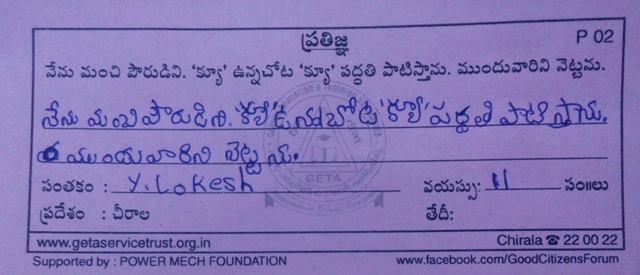 ప్రతిజ్ఞ P 02
నేను మంచి పౌరుడిని. 'క్యూ' ఉన్నచోట 'క్యూ' పద్ధతి పాటిస్తాను. ముందువారిని నెట్టను.
నేను మంచి పౌరుడిని. 'క్యూ' ఉన్నచోట 'క్యూ' పద్ధతి పాటిస్తాను.
ముందువారిని నెట్టను.
సంతకం : Y. Lokesh వయస్సు: 11 సం॥లు
ప్రదేశం : చీరాల తేదీ:
GETA
www.getaservicetrust.org.in Chirala ☎ 22 00 22
Supported by : POWER MECH FOUNDATION www.facebook.com/GoodCitizensForum